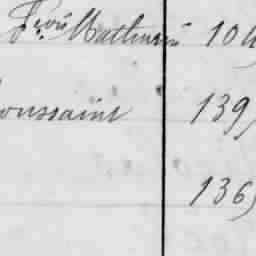 Mathurin 10
oussaint 139
136